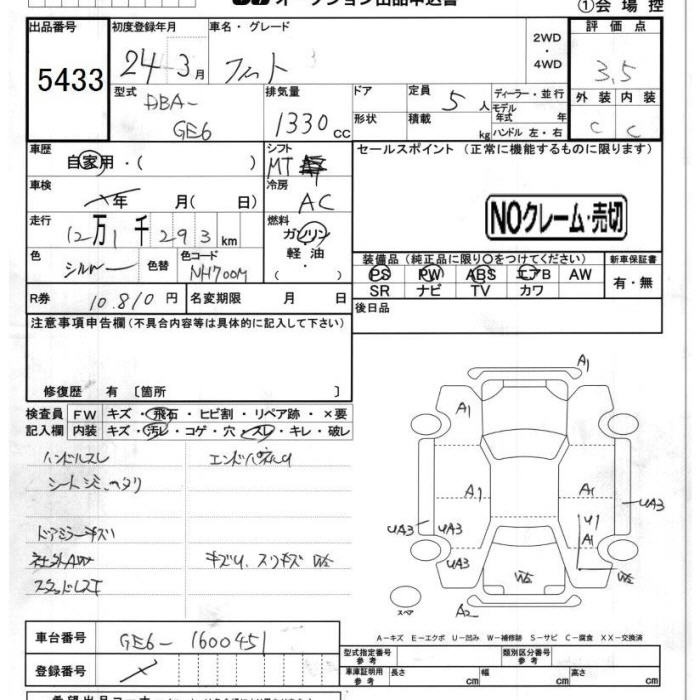 オークション出品申込書
①会場控
出品番号
5433
初度登録年月
24-3月
車名・グレード
フィット
2WD
・
4WD
評価点
3.5
外装 内装
C C
型式
DBA-
GE6
排気量
1330cc
ドア
形状
定員
5人
積載
kg
ディーラー・並行
モデル
年式 年
ハンドル 左・右
車歴
自家用・( )
シフト
MT
セールスポイント (正常に機能するものに限ります)
車検
年 月( 日)
冷房
AC
NOクレーム・売切
走行
12万1千293km
燃料
ガソリン
軽油
色
シルバー
色替
色コード
NH700M
装備品 (純正品に限り○をつけてください)
PS PW ABS エアB AW
SR ナビ TV カワ
新車保証書
有・無
R券
10.810円
名変期限 月 日
後日品
注意事項申告欄(不具合内容等は具体的に記入して下さい)
修復歴 有 〔箇所 〕
検査員 FW キズ・飛石・ヒビ割・リペア跡・×要
記入欄 内装 キズ・汚レ・コゲ・穴・スレ・キレ・破レ
ハンドルスレ
エンドパネルU
シートシミ、ヘタリ
ドアミラーキズ
社外AW
キズU、スリキズ W2
スタッドレス
A1
A1
A1
A1
UA3
UA3
UA3
UA3
U1
A1
W2
W2
A2
スペア
A-キズ E-エクボ U-凹み W-補修跡 S-サビ C-腐食 XX-交換済
車台番号
GE6-1600451
登録番号
型式指定番号
参考
類別区分番号
参考
車庫証明用
参考
長さ cm
幅 cm
高さ cm
希望出品コーナー